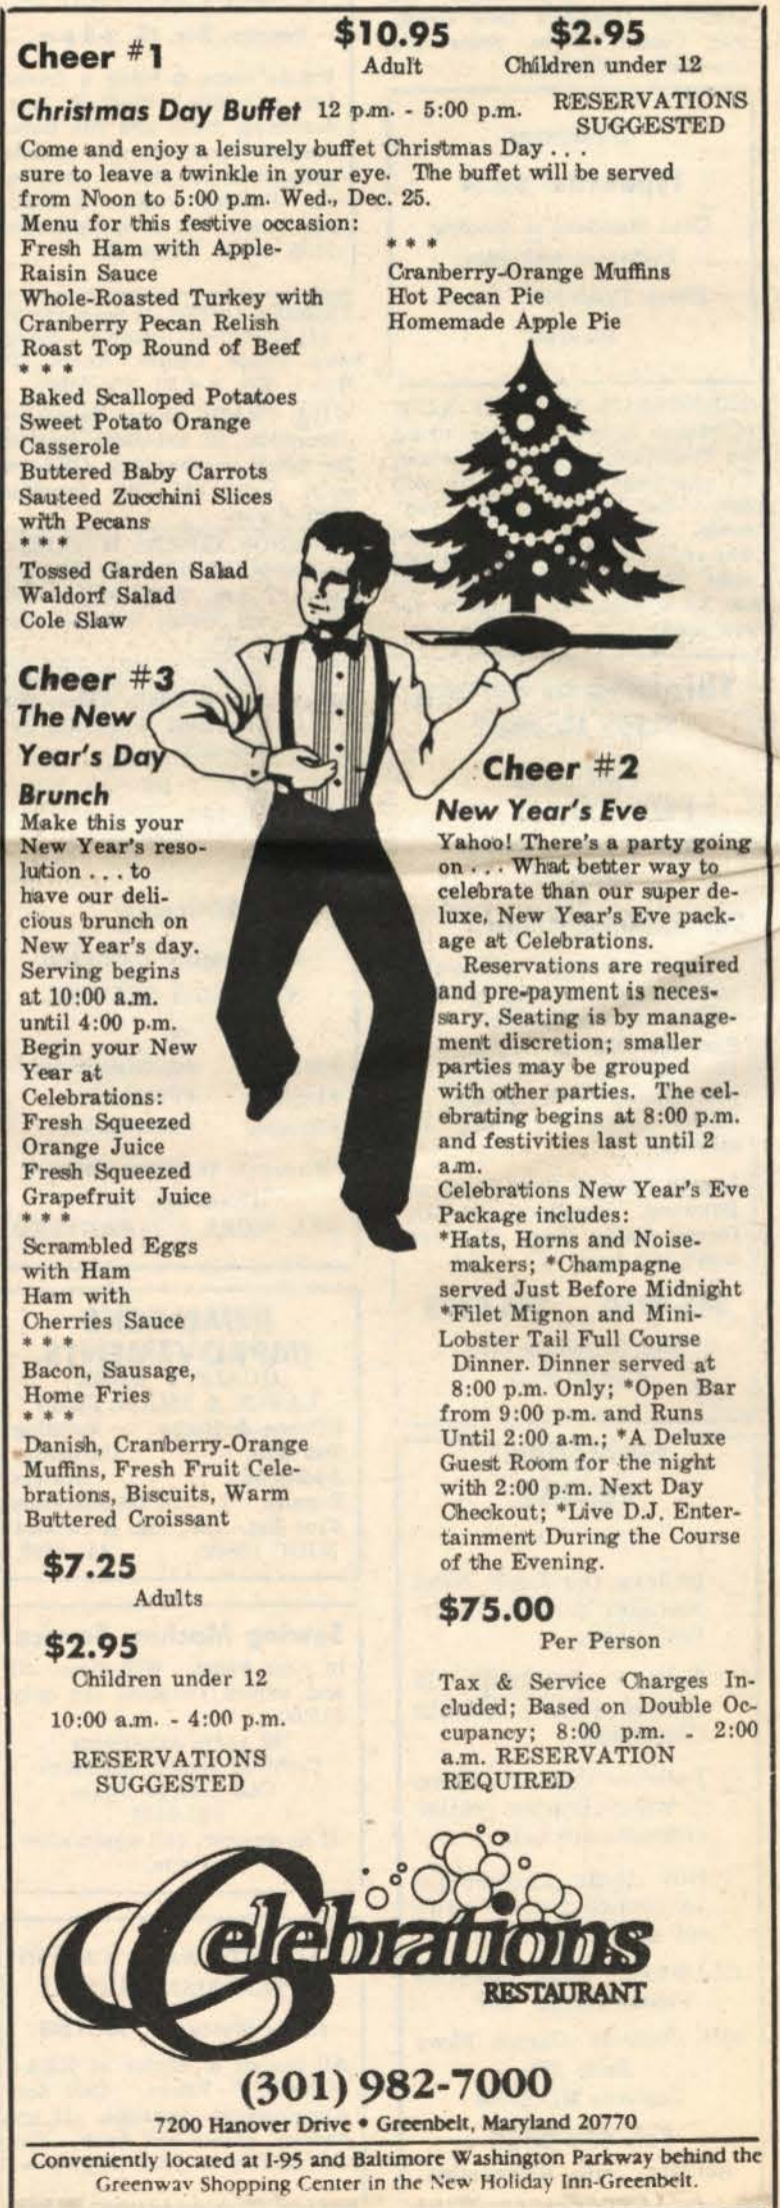 Cheer #1
$10.95
Adult
$2.95
Children under 12
Christmas Day Buffet 12 p.m. - 5:00 p.m.
RESERVATIONS
SUGGESTED
Come and enjoy a leisurely buffet Christmas Day . . .
sure to leave a twinkle in your eye. The buffet will be served
from Noon to 5:00 p.m. Wed., Dec. 25.
Menu for this festive occasion:
Fresh Ham with Apple-
Raisin Sauce
Whole-Roasted Turkey with
Cranberry Pecan Relish
Roast Top Round of Beef
* * *
Baked Scalloped Potatoes
Sweet Potato Orange
Casserole
Buttered Baby Carrots
Sauteed Zucchini Slices
with Pecans
* * *
Tossed Garden Salad
Waldorf Salad
Cole Slaw
* * *
Cranberry-Orange Muffins
Hot Pecan Pie
Homemade Apple Pie
Cheer #3
The New
Year's Day
Brunch
Make this your
New Year's reso-
lution . . . to
have our deli-
cious brunch on
New Year's day.
Serving begins
at 10:00 a.m.
until 4:00 p.m.
Begin your New
Year at
Celebrations:
Fresh Squeezed
Orange Juice
Fresh Squeezed
Grapefruit Juice
* * *
Scrambled Eggs
with Ham
Ham with
Cherries Sauce
* * *
Bacon, Sausage,
Home Fries
* * *
Danish, Cranberry-Orange
Muffins, Fresh Fruit Cele-
brations, Biscuits, Warm
Buttered Croissant
$7.25
Adults
$2.95
Children under 12
10:00 a.m. - 4:00 p.m.
RESERVATIONS
SUGGESTED
Cheer #2
New Year's Eve
Yahoo! There's a party going
on . . . What better way to
celebrate than our super de-
luxe, New Year's Eve pack-
age at Celebrations.
Reservations are required
and pre-payment is neces-
sary. Seating is by manage-
ment discretion; smaller
parties may be grouped
with other parties. The cel-
ebrating begins at 8:00 p.m.
and festivities last until 2
a.m.
Celebrations New Year's Eve
Package includes:
*Hats, Horns and Noise-
makers; *Champagne
served Just Before Midnight
*Filet Mignon and Mini-
Lobster Tail Full Course
Dinner. Dinner served at
8:00 p.m. Only; *Open Bar
from 9:00 p.m. and Runs
Until 2:00 a.m.; *A Deluxe
Guest Room for the night
with 2:00 p.m. Next Day
Checkout; *Live D.J. Enter-
tainment During the Course
of the Evening.
$75.00
Per Person
Tax & Service Charges In-
cluded; Based on Double Oc-
cupancy; 8:00 p.m. - 2:00
a.m. RESERVATION
REQUIRED
Celebrations
RESTAURANT
(301) 982-7000
7200 Hanover Drive • Greenbelt, Maryland 20770
Conveniently located at I-95 and Baltimore Washington Parkway behind the
Greenway Shopping Center in the New Holiday Inn-Greenbelt.